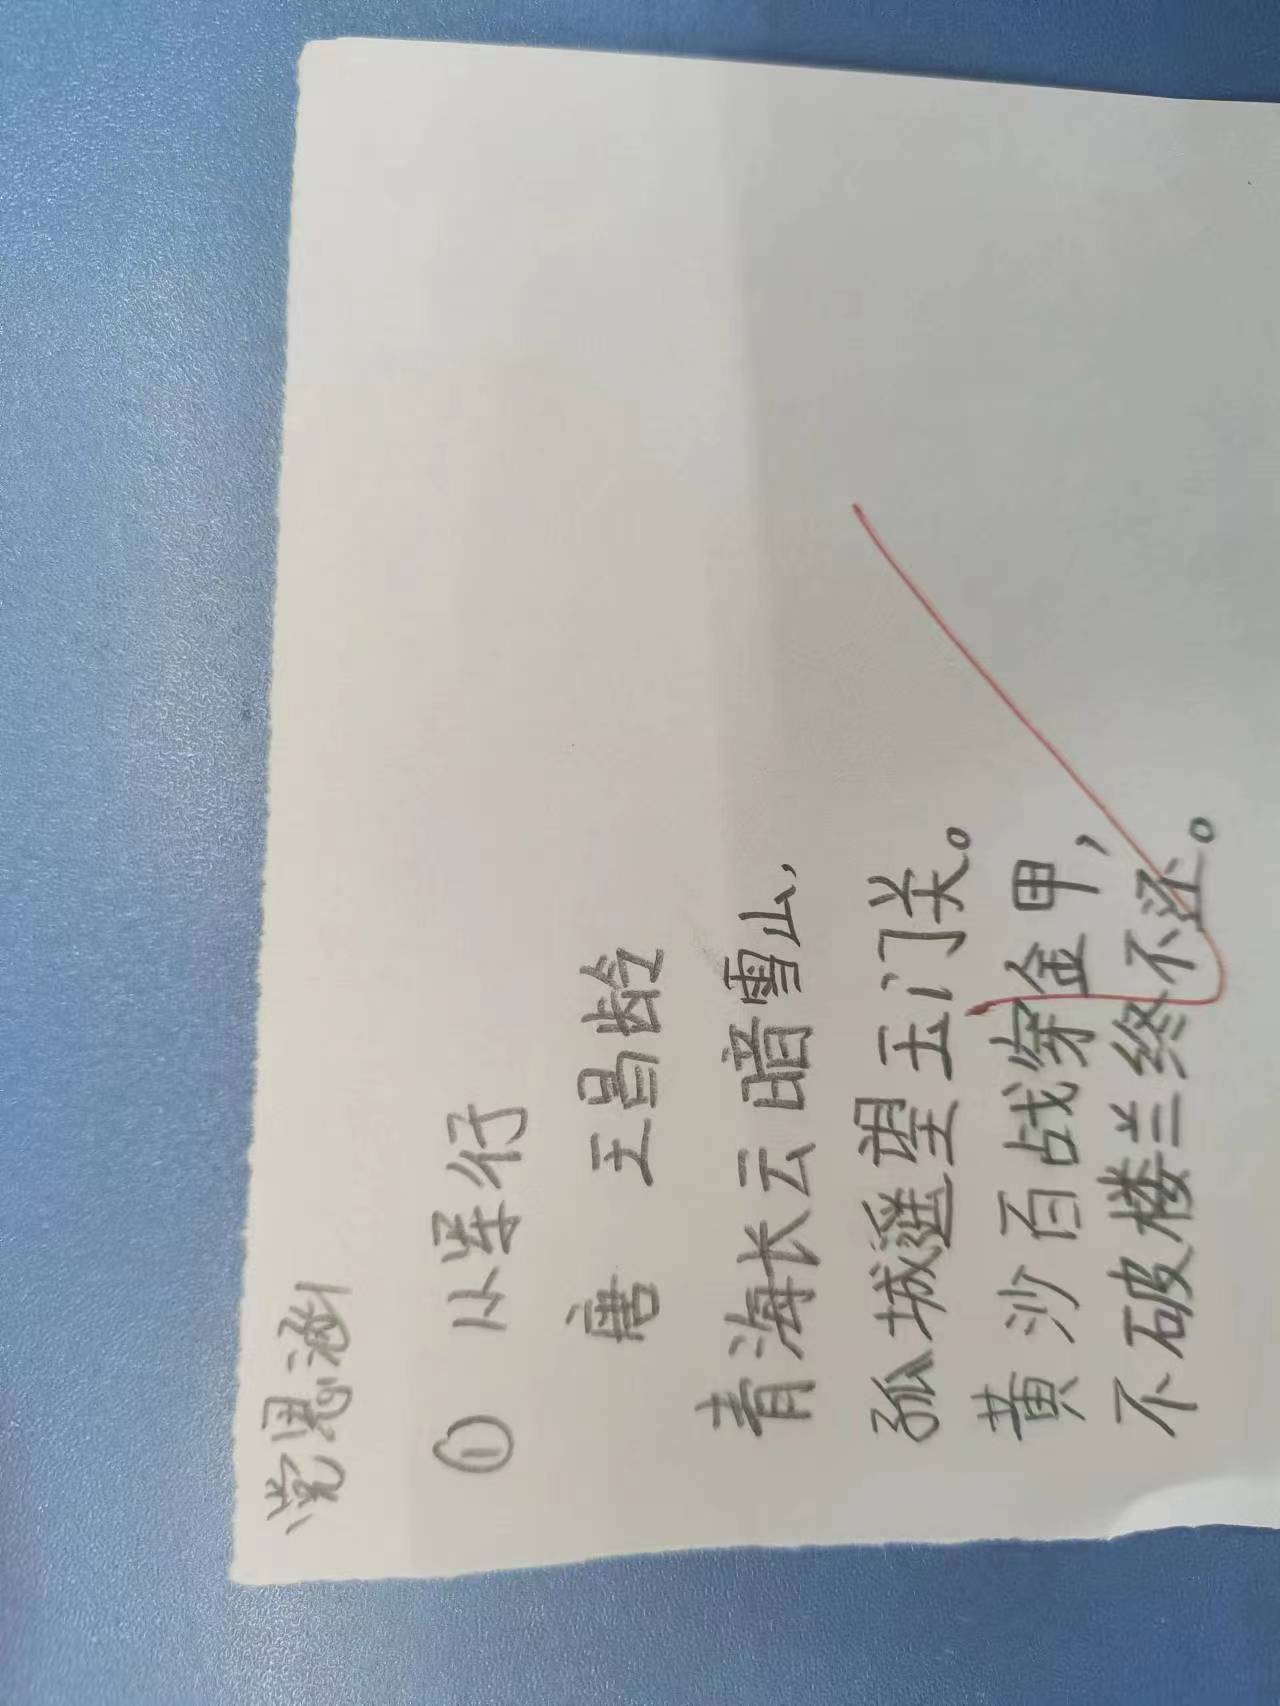 党思涵
① 从军行
唐 王昌龄
青海长云暗雪山,
孤城遥望玉门关。
黄沙百战穿金甲,
不破楼兰终不还。